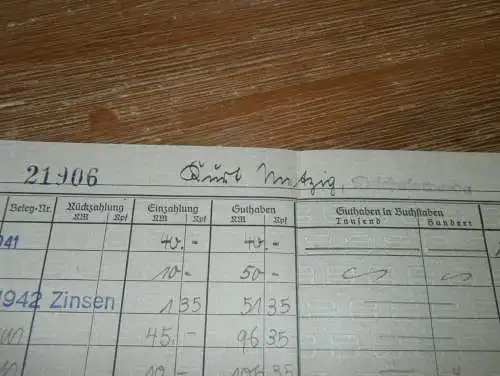 21906 Kurt Mutzig,
Beleg-Nr. Rückzahlung Einzahlung Guthaben Guthaben in Buchstaben
RM Rpf RM Rpf RM Rpf Tausend Hundert
941 40.- 40.-
10- 50-
1942 Zinsen 1 35 51 35
45.- 96 35
10- 106 35